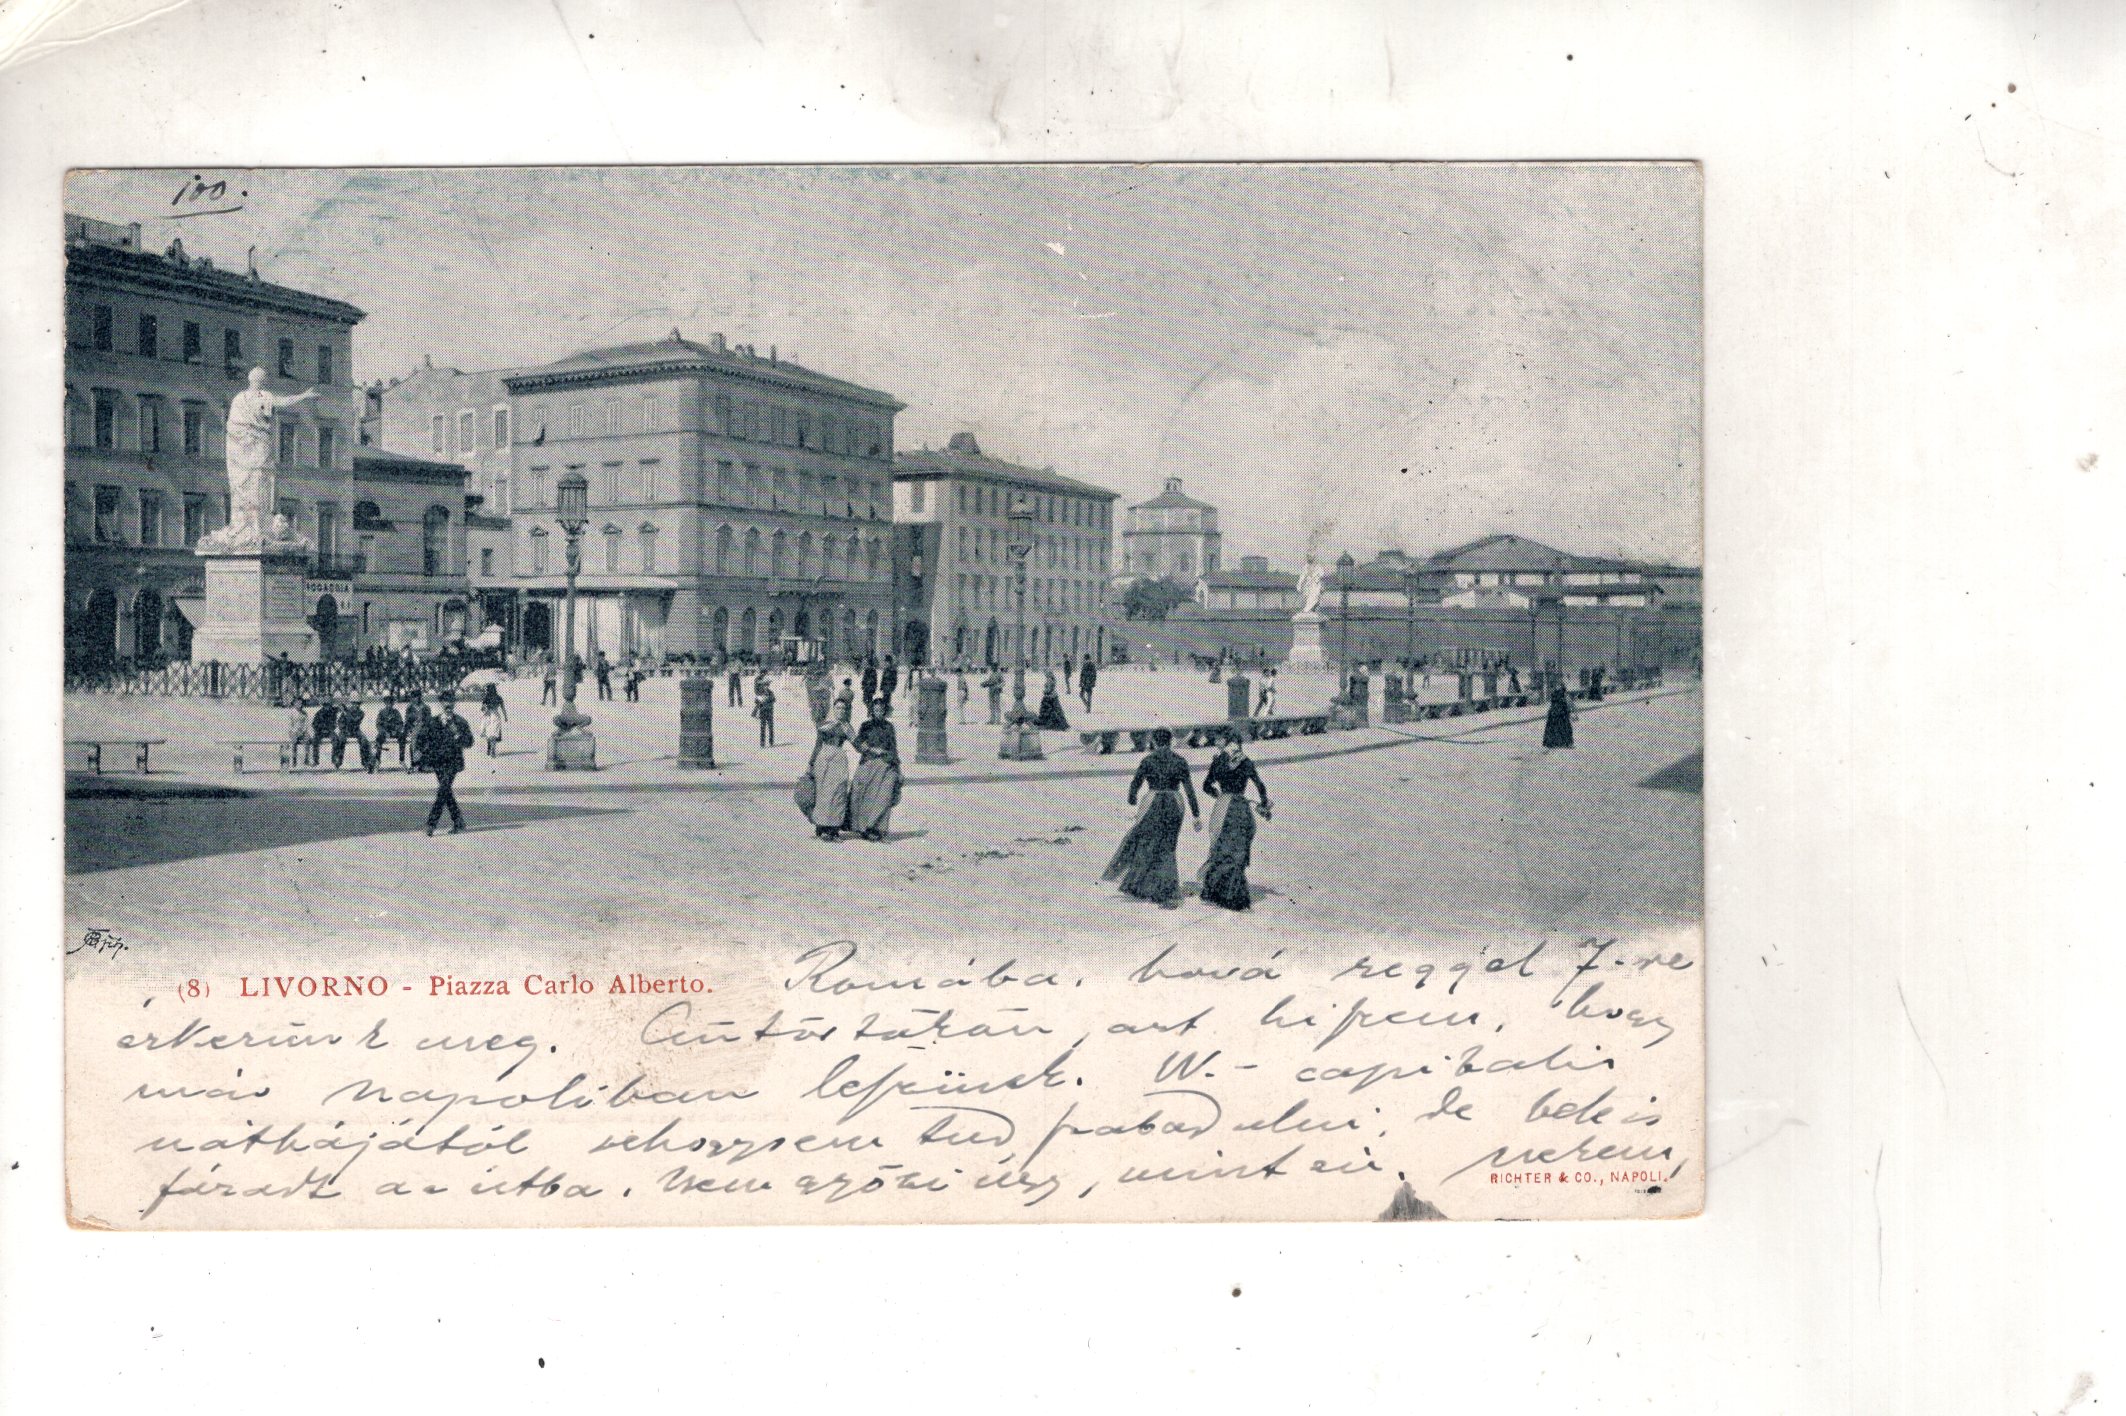 100.
(8) LIVORNO - Piazza Carlo Alberto.
Romába, hová reggel 7-re
érkezünk meg. azt hiszem, hogy
már Napoliban leszünk. W.- capitalis
náthájától sehogysem tud szabadulni, de
fáradt az útba. Nem győzi úgy, mint én. nekem,
RICHTER & CO., NAPOLI.